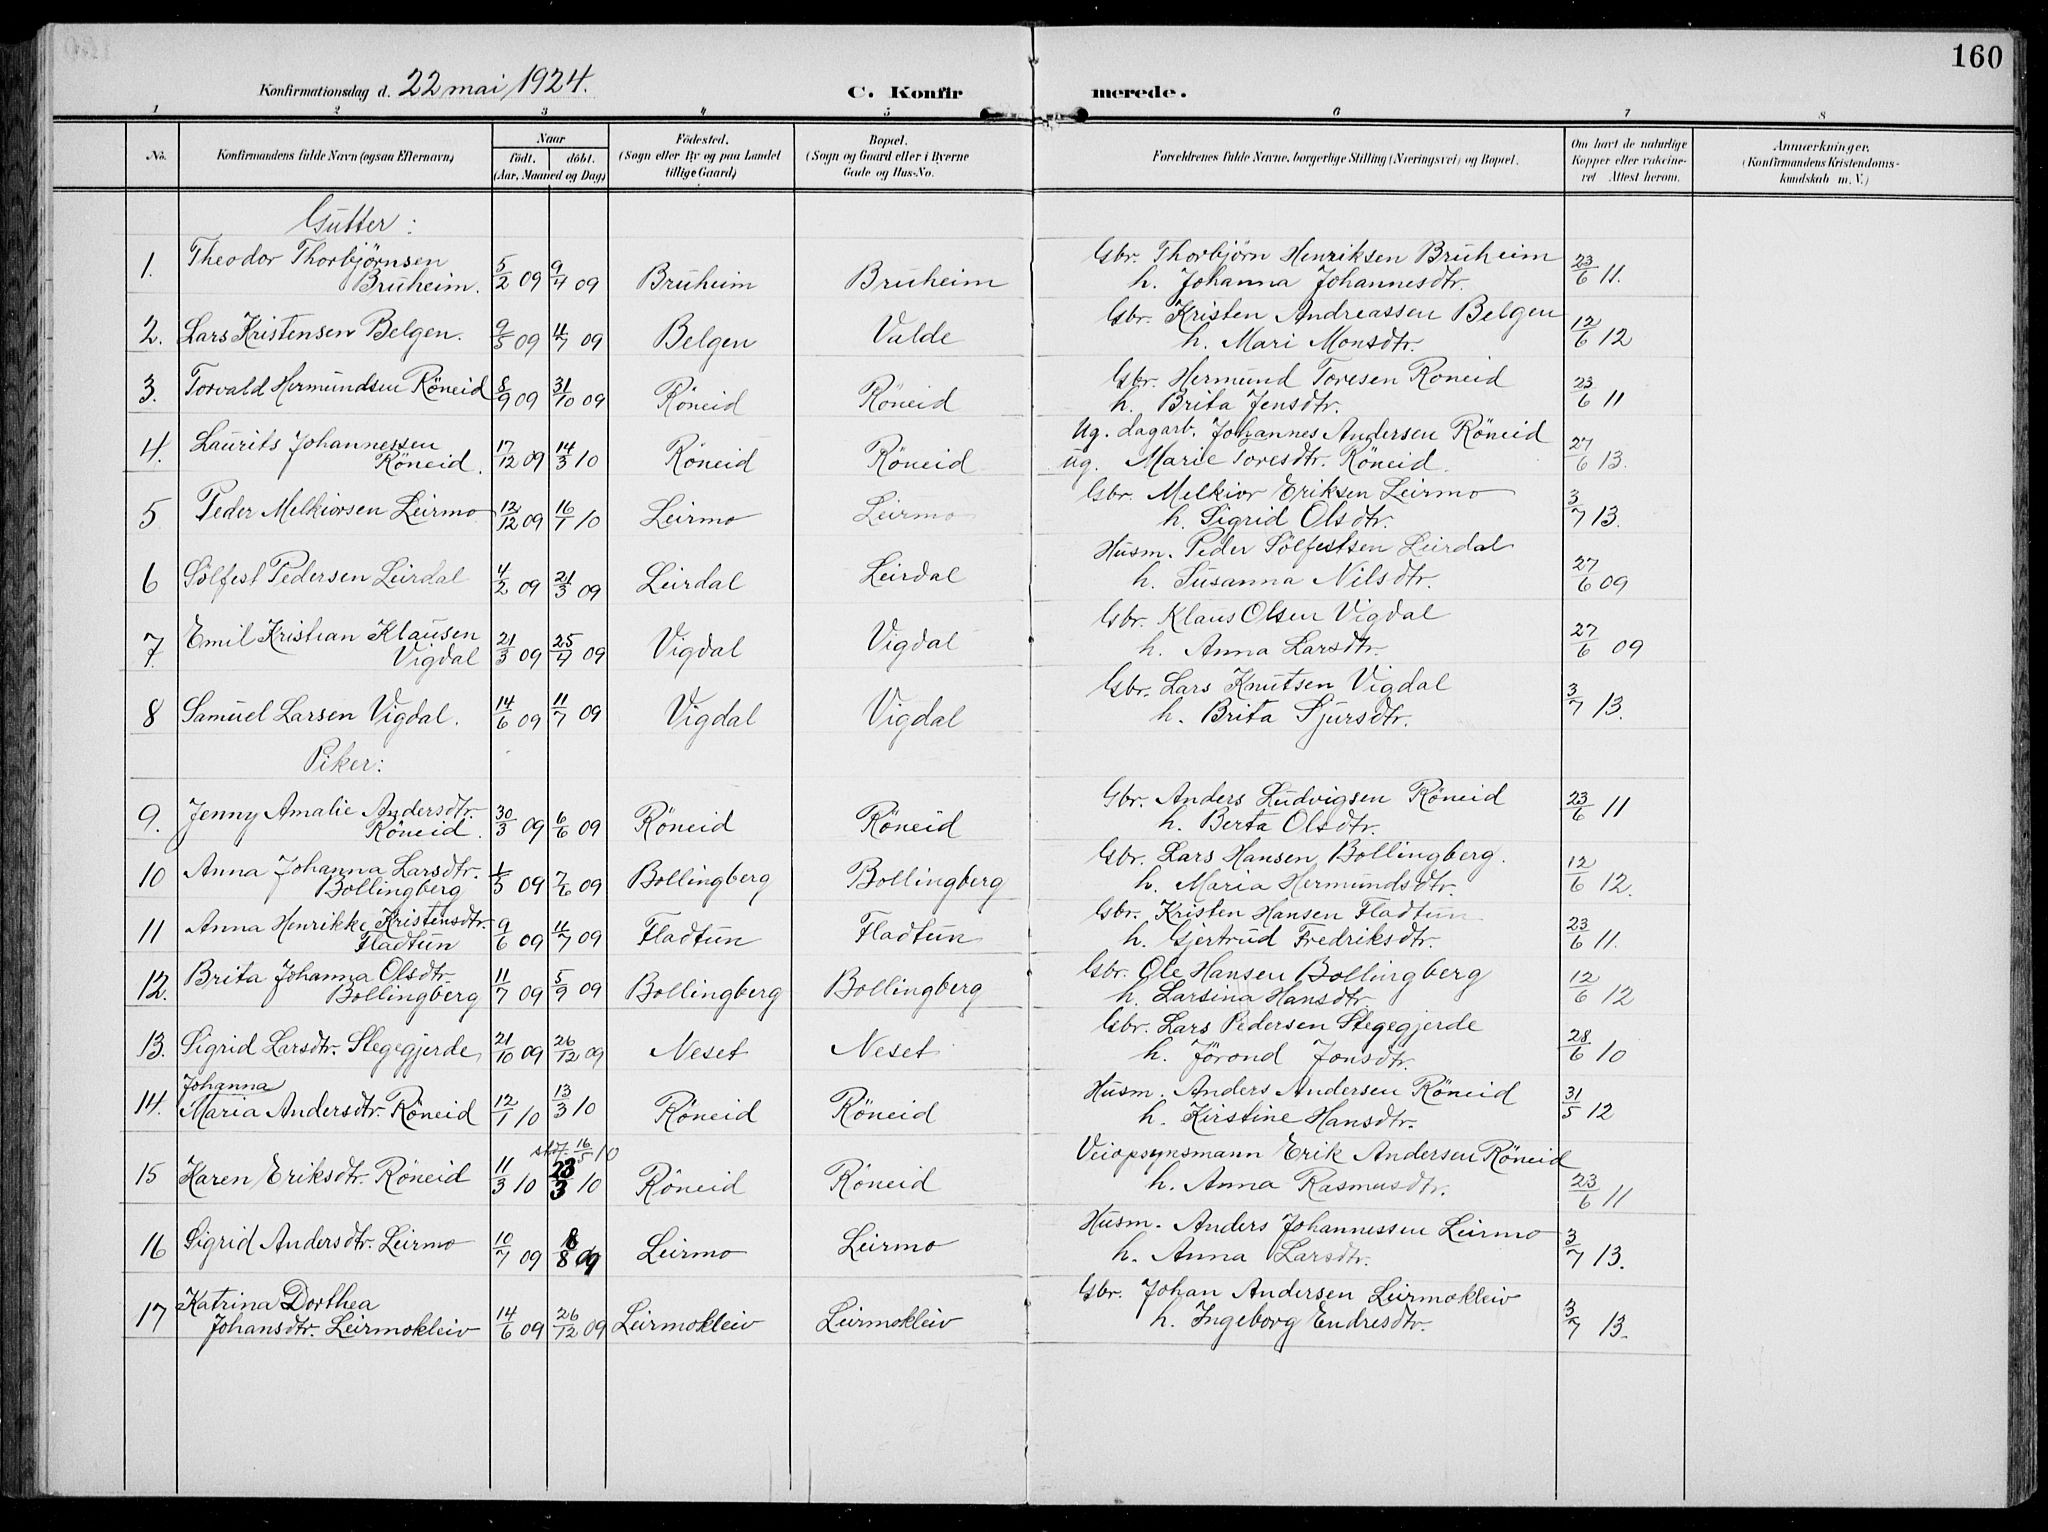 160
Konfirmationsdag d. 22 mai 1924.
C. Konfirmerede.
1 2 3 4 5 6 7 8
No.
Konfirmandens fulde Navn (ogsaa Efternavn)
Naar
födt. döbt.
(Aar, Maaned og Dag)
Födested.
(Sogn eller By og paa Landet
tillige Gaard)
Bopæl.
(Sogn og Gaard eller i Byerne
Gade og Hus-No.
Forældrenes fulde Navne, borgerlige Stilling (Næringsvei) og Bopæl.
Om havt de naturlige
Kopper eller vakcine-
ret Attest herom.
Anmærkninger.
(Konfirmandens Kristendoms-
kundskab m. V.)
Gutter:
1. Theodor Thorbjørnsen
Bruheim. 5/2 09 9/4 09 Bruheim Bruheim Gbr. Thorbjörn Henriksen Bruheim
h. Johanna Johannesdtr. 23/6 11.
2. Lars Kristensen Belgen. 9/5 09 4/7 09 Belgen Valde Gbr. Kristen Andreassen Belgen
h. Mari Monsdtr. 12/6 12
3. Torvald Hermundsen Röneid 8/9 09 31/10 09 Röneid Röneid Gbr. Hermund Toresen Roneid
h. Brita Jensdtr. 23/6 11
4. Laurits Johannessen
Röneid. 17/12 09 14/3 10 Röneid Röneid Ug. dagarb. Johannes Andersen Röneid
ug. Marie Toresdtr. Röneid. 27/6 13.
5 Peder Melkiorsen Leirmo 12/12 09 16/1 10 Leirmo Leirmo Gbr. Melkior Eriksen Leirmo
h. Sigrid Olsdtr. 3/7 13.
6 Sölfest Pedersen Leirdal 4/2 09 21/3 09 Leirdal Leirdal Husm. Peder Sölfestsen Leirdal
h. Susanna Nilsdtr. 27/6 09
7. Emil Kristian Klausen
Vigdal 21/3 09 25/4 09 Vigdal Vigdal Gbr. Klaus Olsen Vigdal
h. Anna Larsdtr. 27/6 09
8 Samuel Larsen Vigdal. 14/6 09 11/7 09 Vigdal Vigdal Gbr. Lars Knutsen Vigdal
h. Brita Sjursdtr. 3/7 13.
Piker:
9. Jenny Amalie Andersdtr.
Röneid. 30/3 09 6/6 09 Röneid Röneid Gbr. Anders Ludvigsen Röneid
h. Berta Olsdtr. 23/6 11
10 Anna Johanna Larsdtr.
Bollingberg 1/5 09 7/6 09 Bollingberg Bollingberg Gbr. Lars Hansen Bollingberg.
h. Maria Hermundsdtr. 12/6 12.
11 Anna Henrikke Kristensdtr.
Fladtun 9/6 09 11/7 09 Fladtun Fladtun Gbr. Kristen Hansen Fladtun
h. Gjertrud Fredriksdtr. 23/6 11.
12. Brita Johanna Olsdtr.
Bollingberg 11/7 09 5/9 09 Bollingberg Bollingberg Gbr. Ole Hansen Bollingberg
h. Larsina Hansdtr. 12/6 12
13. Sigrid Larsdtr. Stegegjerde 21/10 09 26/12 09 Neset Neset Gbr. Lars Pedersen Stegegjerde
h. Jörond Jonsdtr. 28/6 10
Johanna
14. Maria Andersdtr. Röneid 12/1 10 13/3 10 Röneid Röneid Husm. Anders Andersen Röneid
h. Kirstine Hansdtr. 31/5 12
16/5 10
15 Karen Eriksdtr. Röneid 11/3 10 23/3 10 Röneid Röneid Veiopsynsmann Erik Andersen Röneid
h. Anna Rasmusdtr. 23/6 11
16 Sigrid Andersdtr. Leirmo 10/7 09 8/8 09 Leirmo Leirmo Husm. Anders Johannessen Leirmo
h. Anna Larsdtr. 3/7 13.
17 Katrina Dorthea
Johansdtr. Leirmokleiv 14/6 09 26/12 09 Leirmokleiv Leirmokleiv Gbr. Johan Andersen Leirmokleiv
h. Ingeborg Endresdtr. 3/7 13.